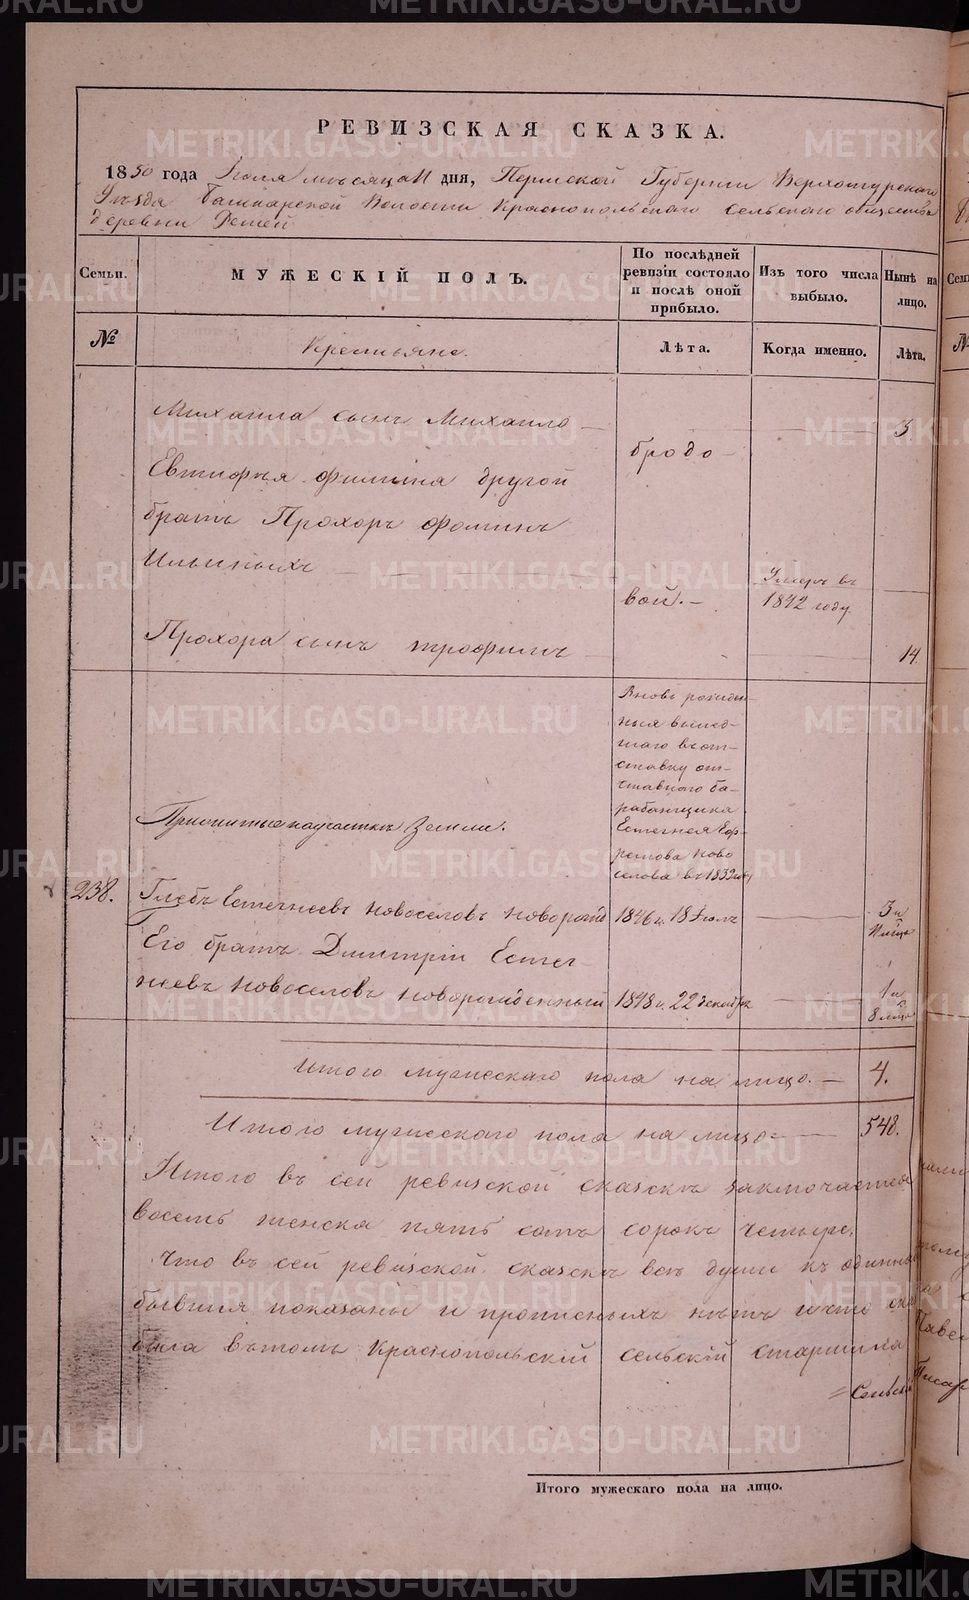 РЕВИЗСКАЯ СКАЗКА.
1850 года Іюля мѣсяца 11 дня, Пермской Губерніи Верхотурскаго
Уѣзда Башкарской Волости Краснопольскаго сельскаго общества
деревни
Семьи.
МУЖЕСКІЙ ПОЛЪ.
По послѣдней
ревизіи состояло
и послѣ оной
прибыло.
Изъ того числа
выбыло.
Нынѣ на
лицо.
№
Крестьяне.
Лѣта.
Когда именно.
Лѣта.
Михаила сынъ Михаило
бродо
Евтифія Фомина другой
братъ Прохоръ Фоминъ
Ильиныхъ
вой.
Умеръ въ
1842 году
Прохора сынъ Трофимъ
14.
Вновь рожден-
ныя вышед-
шаго въ от-
ставку от-
ставнаго ба-
рабанщика
Естегнея Еф-
ремова Ново
селова въ
Земли.
238.
Глебъ Естегнеевъ Новоселовъ новорожд
1846 г. 18 Іюль
3 и
Его братъ Димитрій Естег-
неевъ Новоселовъ новорожденный
1848 г. 22 декабрь
1 и
8 мѣца
Итого мужескаго пола на лицо.
4.
Итого мужескаго пола на лицо
548.
Итого въ сей ревизской сказкѣ заключается
восемь женска пять сотъ сорокъ четыре.
Что въ сей ревизской сказкѣ всѣ души къ
показаны и прописныхъ нѣтъ и что
въ томъ Краснопольскій сельскій старшина
Сельскій
Итого мужескаго пола на лицо.
METRIKI.GASO-URAL.RU